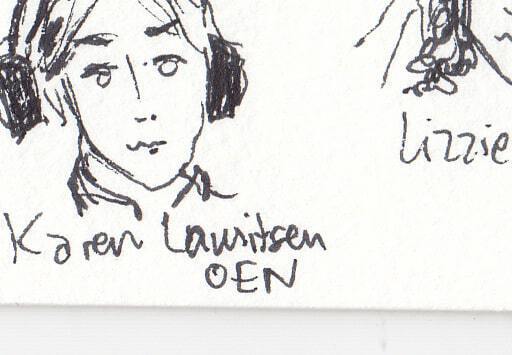 Karen Lauritsen
OEN
Lizzie